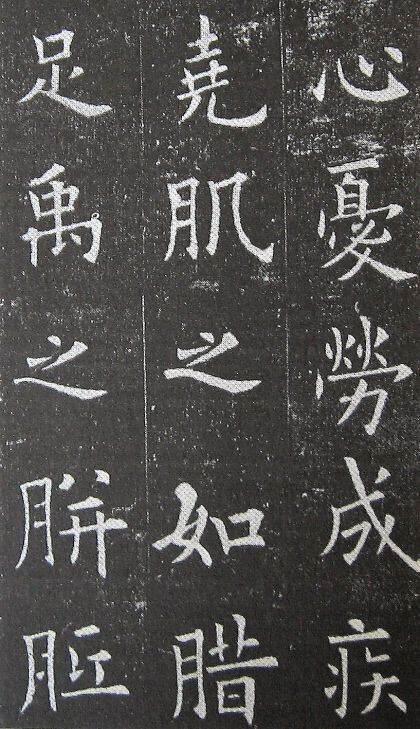 心憂勞成疾
堯肌之如腊
足禹之胼胝